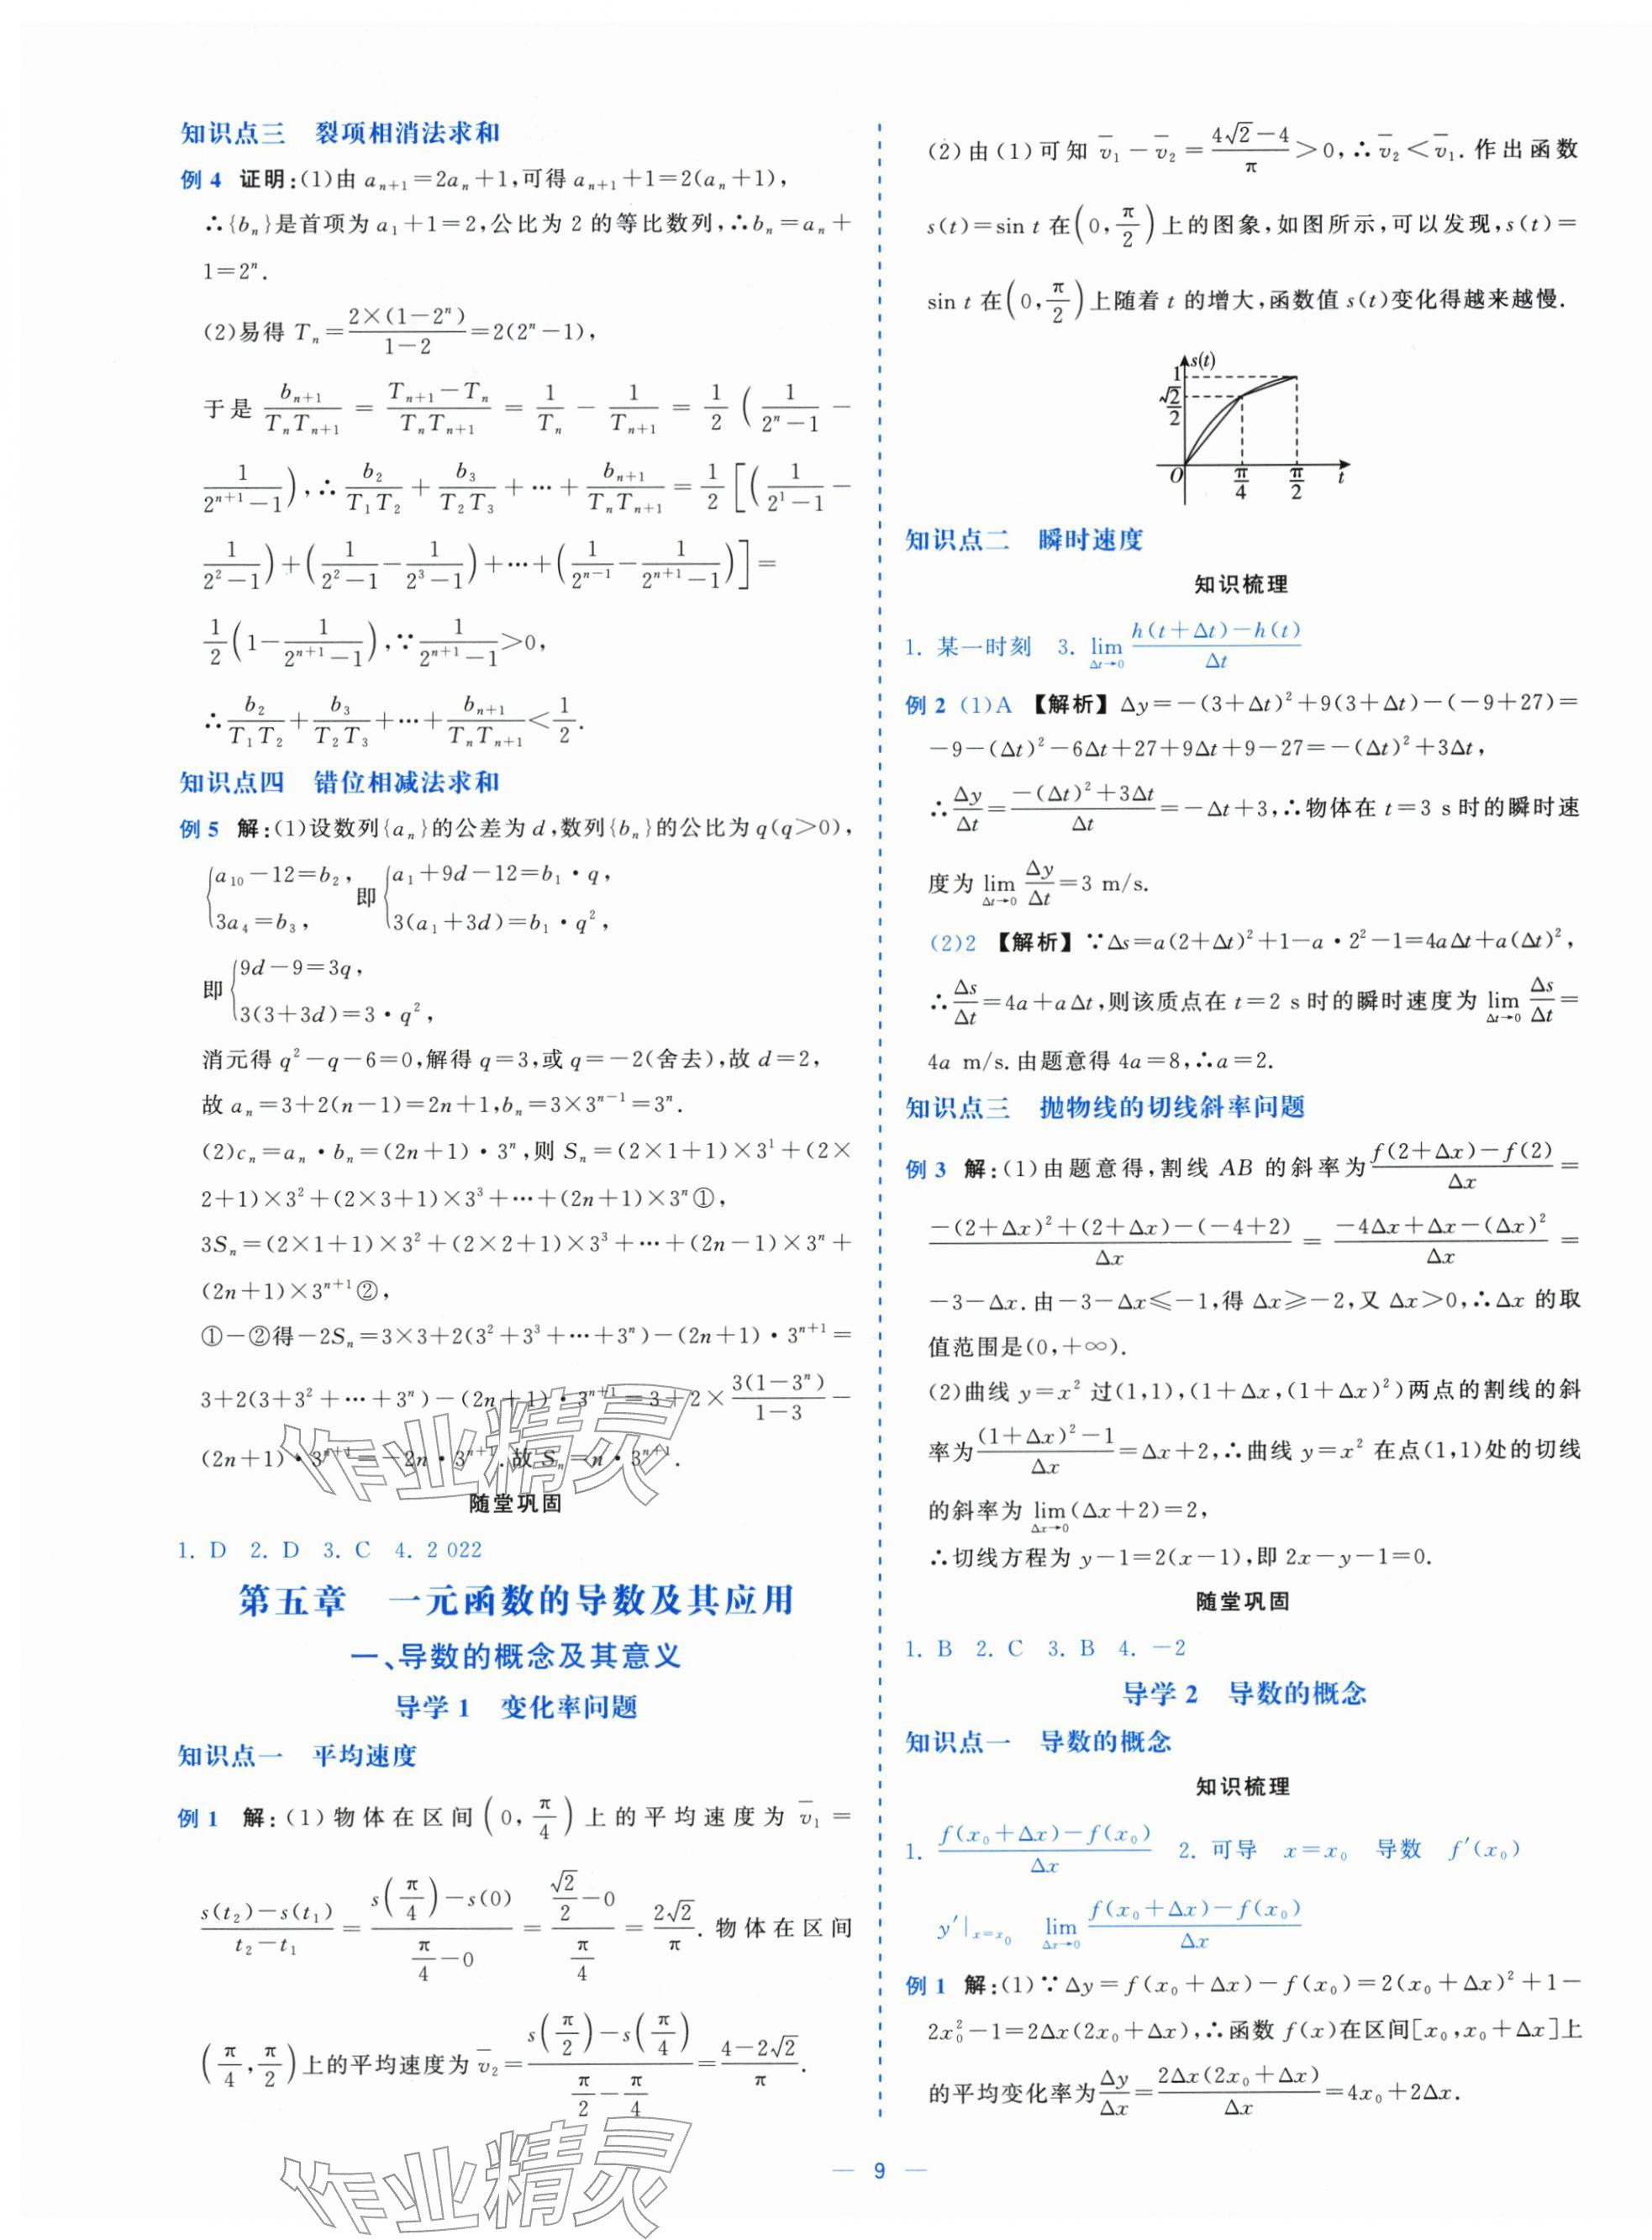 知识点三 裂项相消法求和
例4 证明:(1)由 aₙ₊₁=2aₙ+1,可得 aₙ₊₁+1=2(aₙ+1),
∴{bₙ}是首项为 a₁+1=2,公比为 2 的等比数列,∴bₙ=aₙ+
1=2ⁿ.
(2)易得 Tₙ=\frac{2×(1-2ⁿ)}{1-2}=2(2ⁿ-1),
于是 \frac{b_{n+1}}{T_nT_{n+1}} = \frac{T_{n+1}-T_n}{T_nT_{n+1}} = \frac{1}{T_n} - \frac{1}{T_{n+1}} = \frac{1}{2}(\frac{1}{2^n-1} -
\frac{1}{2^{n+1}-1}),∴\frac{b_2}{T_1T_2}+\frac{b_3}{T_2T_3}+…+\frac{b_{n+1}}{T_nT_{n+1}}=\frac{1}{2}[(\frac{1}{2^1-1}-
\frac{1}{2^2-1})+(\frac{1}{2^2-1}-\frac{1}{2^3-1})+…+(\frac{1}{2^{n-1}}-\frac{1}{2^{n+1}-1})]=
\frac{1}{2}(1-\frac{1}{2^{n+1}-1}),∵\frac{1}{2^{n+1}-1}>0,
∴\frac{b_2}{T_1T_2}+\frac{b_3}{T_2T_3}+…+\frac{b_{n+1}}{T_nT_{n+1}}<\frac{1}{2}.
知识点四 错位相减法求和
例5 解:(1)设数列{aₙ}的公差为 d,数列{bₙ}的公比为 q(q>0),
{a₁₀-12=b₂, 3a₄=b₃, 即{a₁+9d-12=b₁·q, 3(a₁+3d)=b₁·q²,
即{9d-9=3q, 3(3+3d)=3·q²,
消元得 q²-q-6=0,解得 q=3,或 q=-2(舍去),故 d=2,
故 aₙ=3+2(n-1)=2n+1,bₙ=3×3ⁿ⁻¹=3ⁿ.
(2)cₙ=aₙ·bₙ=(2n+1)·3ⁿ,则 Sₙ=(2×1+1)×3¹+(2×
2+1)×3²+(2×3+1)×3³+…+(2n+1)×3ⁿ①,
3Sₙ=(2×1+1)×3²+(2×2+1)×3³+…+(2n-1)×3ⁿ+
(2n+1)×3ⁿ⁺¹②,
①-②得-2Sₙ=3×3+2(3²+3³+…+3ⁿ)-(2n+1)·3ⁿ⁺¹=
3+2(3+3²+…+3ⁿ)-(2n+1)·3ⁿ⁺¹=3+2×\frac{3(1-3ⁿ)}{1-3}-
(2n+1)·3ⁿ⁺¹=-2n·3ⁿ⁺¹.故 Sₙ=n·3ⁿ⁺¹.
随堂巩固
1. D 2. D 3. C 4. 2 022
第五章 一元函数的导数及其应用
一、导数的概念及其意义
导学1 变化率问题
知识点一 平均速度
例1 解:(1)物体在区间(0,\frac{π}{4})上的平均速度为 \bar{v}₁=
\frac{s(t₂)-s(t₁)}{t₂-t₁}=\frac{s(\frac{π}{4})-s(0)}{\frac{π}{4}-0}=\frac{\frac{√2}{2}-0}{\frac{π}{4}}=\frac{2√2}{π}.物体在区间
(\frac{π}{4},\frac{π}{2})上的平均速度为 \bar{v}₂=\frac{s(\frac{π}{2})-s(\frac{π}{4})}{\frac{π}{2}-\frac{π}{4}}=\frac{4-2√2}{π}.
(2)由(1)可知 \bar{v}₁-\bar{v}₂=\frac{4√2-4}{π}>0,∴\bar{v}₂<\bar{v}₁.作出函数
s(t)=sin t 在(0,\frac{π}{2})上的图象,如图所示,可以发现,s(t)=
sin t 在(0,\frac{π}{2})上随着 t 的增大,函数值 s(t)变化得越来越慢.
s(t)
1
\frac{√2}{2}
O \frac{π}{4} \frac{π}{2} t
知识点二 瞬时速度
知识梳理
1. 某一时刻 3. \lim_{Δt→0}\frac{h(t+Δt)-h(t)}{Δt}
例2 (1)A 【解析】Δy=-(3+Δt)²+9(3+Δt)-(-9+27)=
-9-(Δt)²-6Δt+27+9Δt+9-27=-(Δt)²+3Δt,
∴\frac{Δy}{Δt}=\frac{-(Δt)²+3Δt}{Δt}=-Δt+3,∴物体在 t=3 s 时的瞬时速
度为 \lim_{Δt→0}\frac{Δy}{Δt}=3 m/s.
(2)2 【解析】∵Δs=a(2+Δt)²+1-a·2²-1=4aΔt+a(Δt)²,
∴\frac{Δs}{Δt}=4a+aΔt,则该质点在 t=2 s 时的瞬时速度为 \lim_{Δt→0}\frac{Δs}{Δt}=
4a m/s.由题意得 4a=8,∴a=2.
知识点三 抛物线的切线斜率问题
例3 解:(1)由题意得,割线 AB 的斜率为\frac{f(2+Δx)-f(2)}{Δx}=
\frac{-(2+Δx)²+(2+Δx)-(-4+2)}{Δx}=\frac{-4Δx+Δx-(Δx)²}{Δx}=
-3-Δx.由-3-Δx≤-1,得 Δx≥-2,又 Δx>0,∴Δx 的取
值范围是(0,+∞).
(2)曲线 y=x² 过(1,1),(1+Δx,(1+Δx)²)两点的割线的斜
率为\frac{(1+Δx)²-1}{Δx}=Δx+2,∴曲线 y=x² 在点(1,1)处的切线
的斜率为 \lim_{Δx→0}(Δx+2)=2,
∴切线方程为 y-1=2(x-1),即 2x-y-1=0.
随堂巩固
1. B 2. C 3. B 4. -2
导学2 导数的概念
知识点一 导数的概念
知识梳理
1. \frac{f(x₀+Δx)-f(x₀)}{Δx} 2. 可导 x=x₀ 导数 f′(x₀)
y′|_{x=x₀} \lim_{Δx→0}\frac{f(x₀+Δx)-f(x₀)}{Δx}
例1 解:(1)∵Δy=f(x₀+Δx)-f(x₀)=2(x₀+Δx)²+1-
2x₀²-1=2Δx(2x₀+Δx),∴函数 f(x)在区间[x₀,x₀+Δx]上
的平均变化率为\frac{Δy}{Δx}=\frac{2Δx(2x₀+Δx)}{Δx}=4x₀+2Δx.
— 9 —
作业精灵
作业精灵